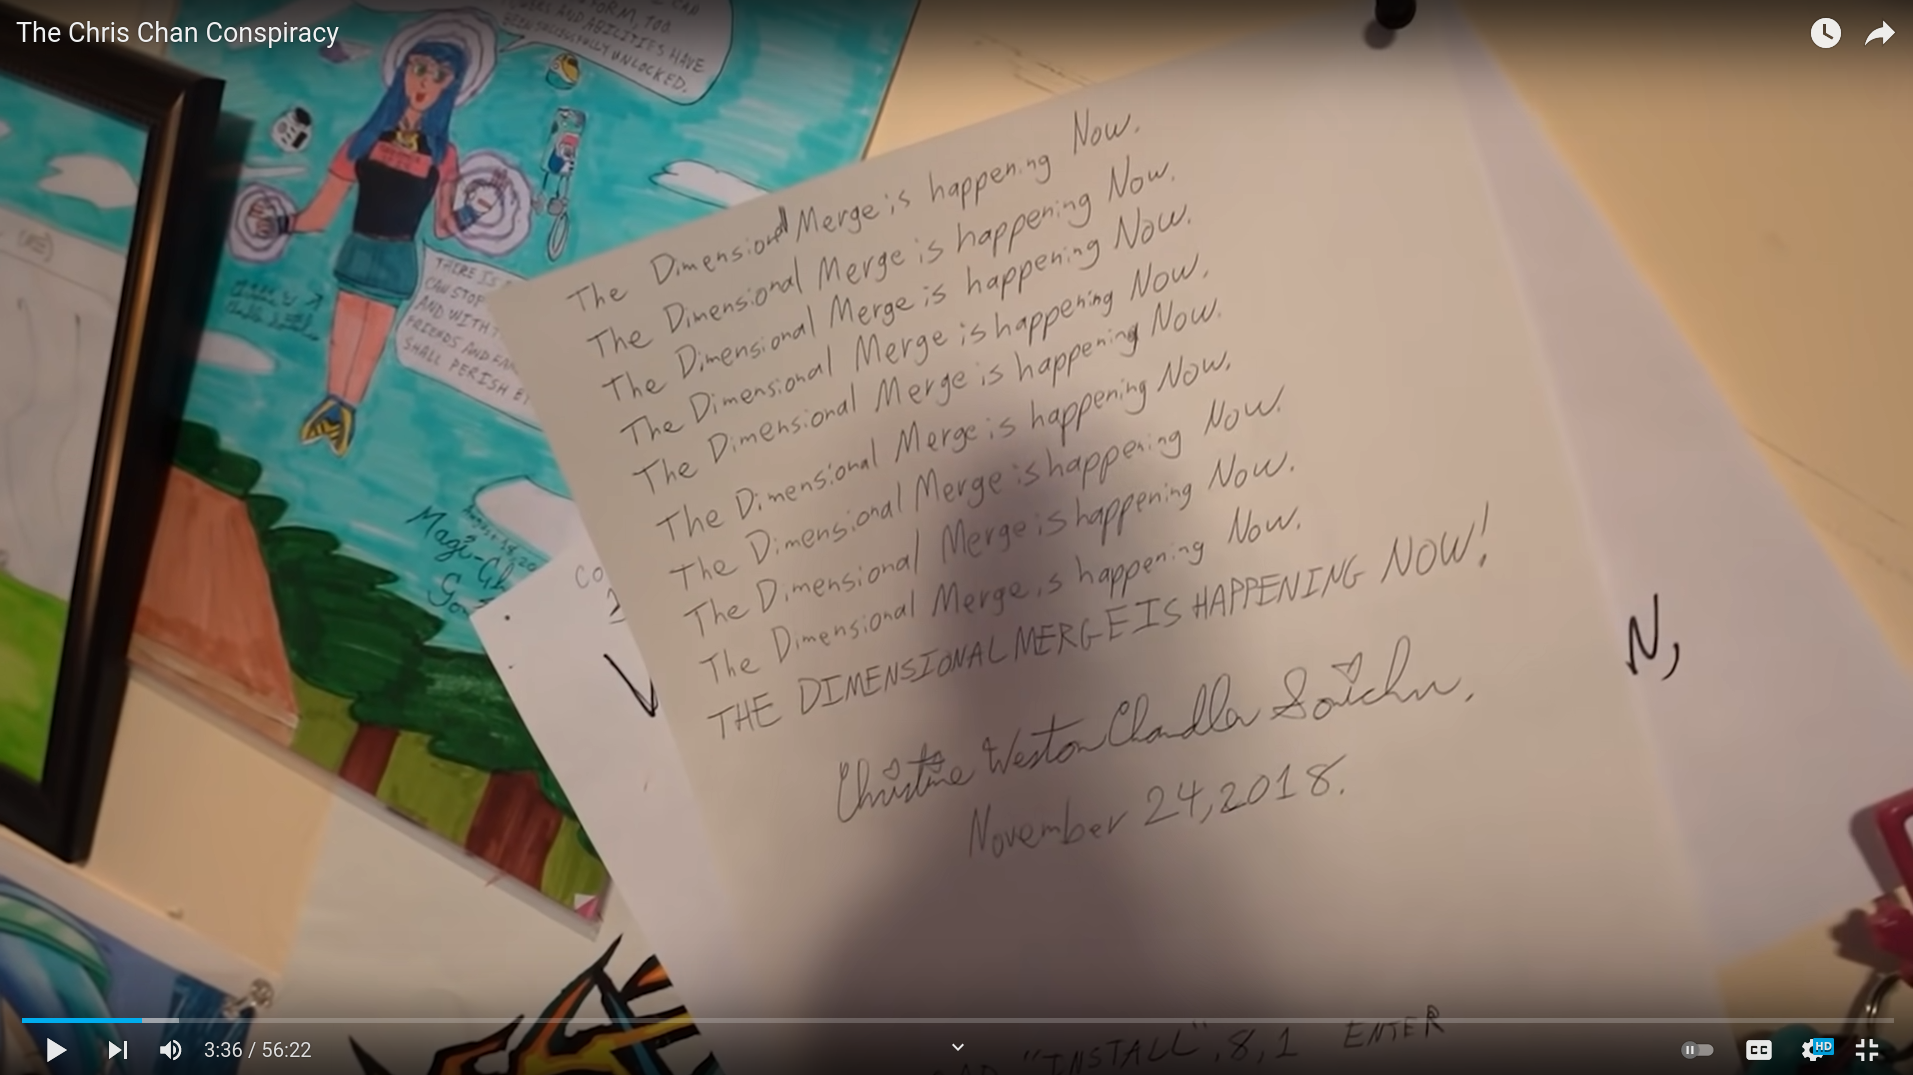 The Chris Chan Conspiracy
FORM, TOO
AND ABILITIES HAVE
BEEN SUCCESSFULLY UNLOCKED.
THERE IS
CAN STOP
AND WITH
FRIENDS AND
SHALL PERISH
The Dimensional Merge is happening Now.
The Dimensional Merge is happening Now.
The Dimensional Merge is happening Now.
The Dimensional Merge is happening Now.
The Dimensional Merge is happening Now.
The Dimensional Merge is happening Now.
The Dimensional Merge is happening Now.
The Dimensional Merge is happening Now.
The Dimensional Merge is happening Now.
THE DIMENSIONAL MERGE IS HAPPENING NOW!
Christine Weston Chandler Sonichu,
November 24, 2018.
N,
"INSTALL",8,1 ENTER
3:36 / 56:22
CC
HD